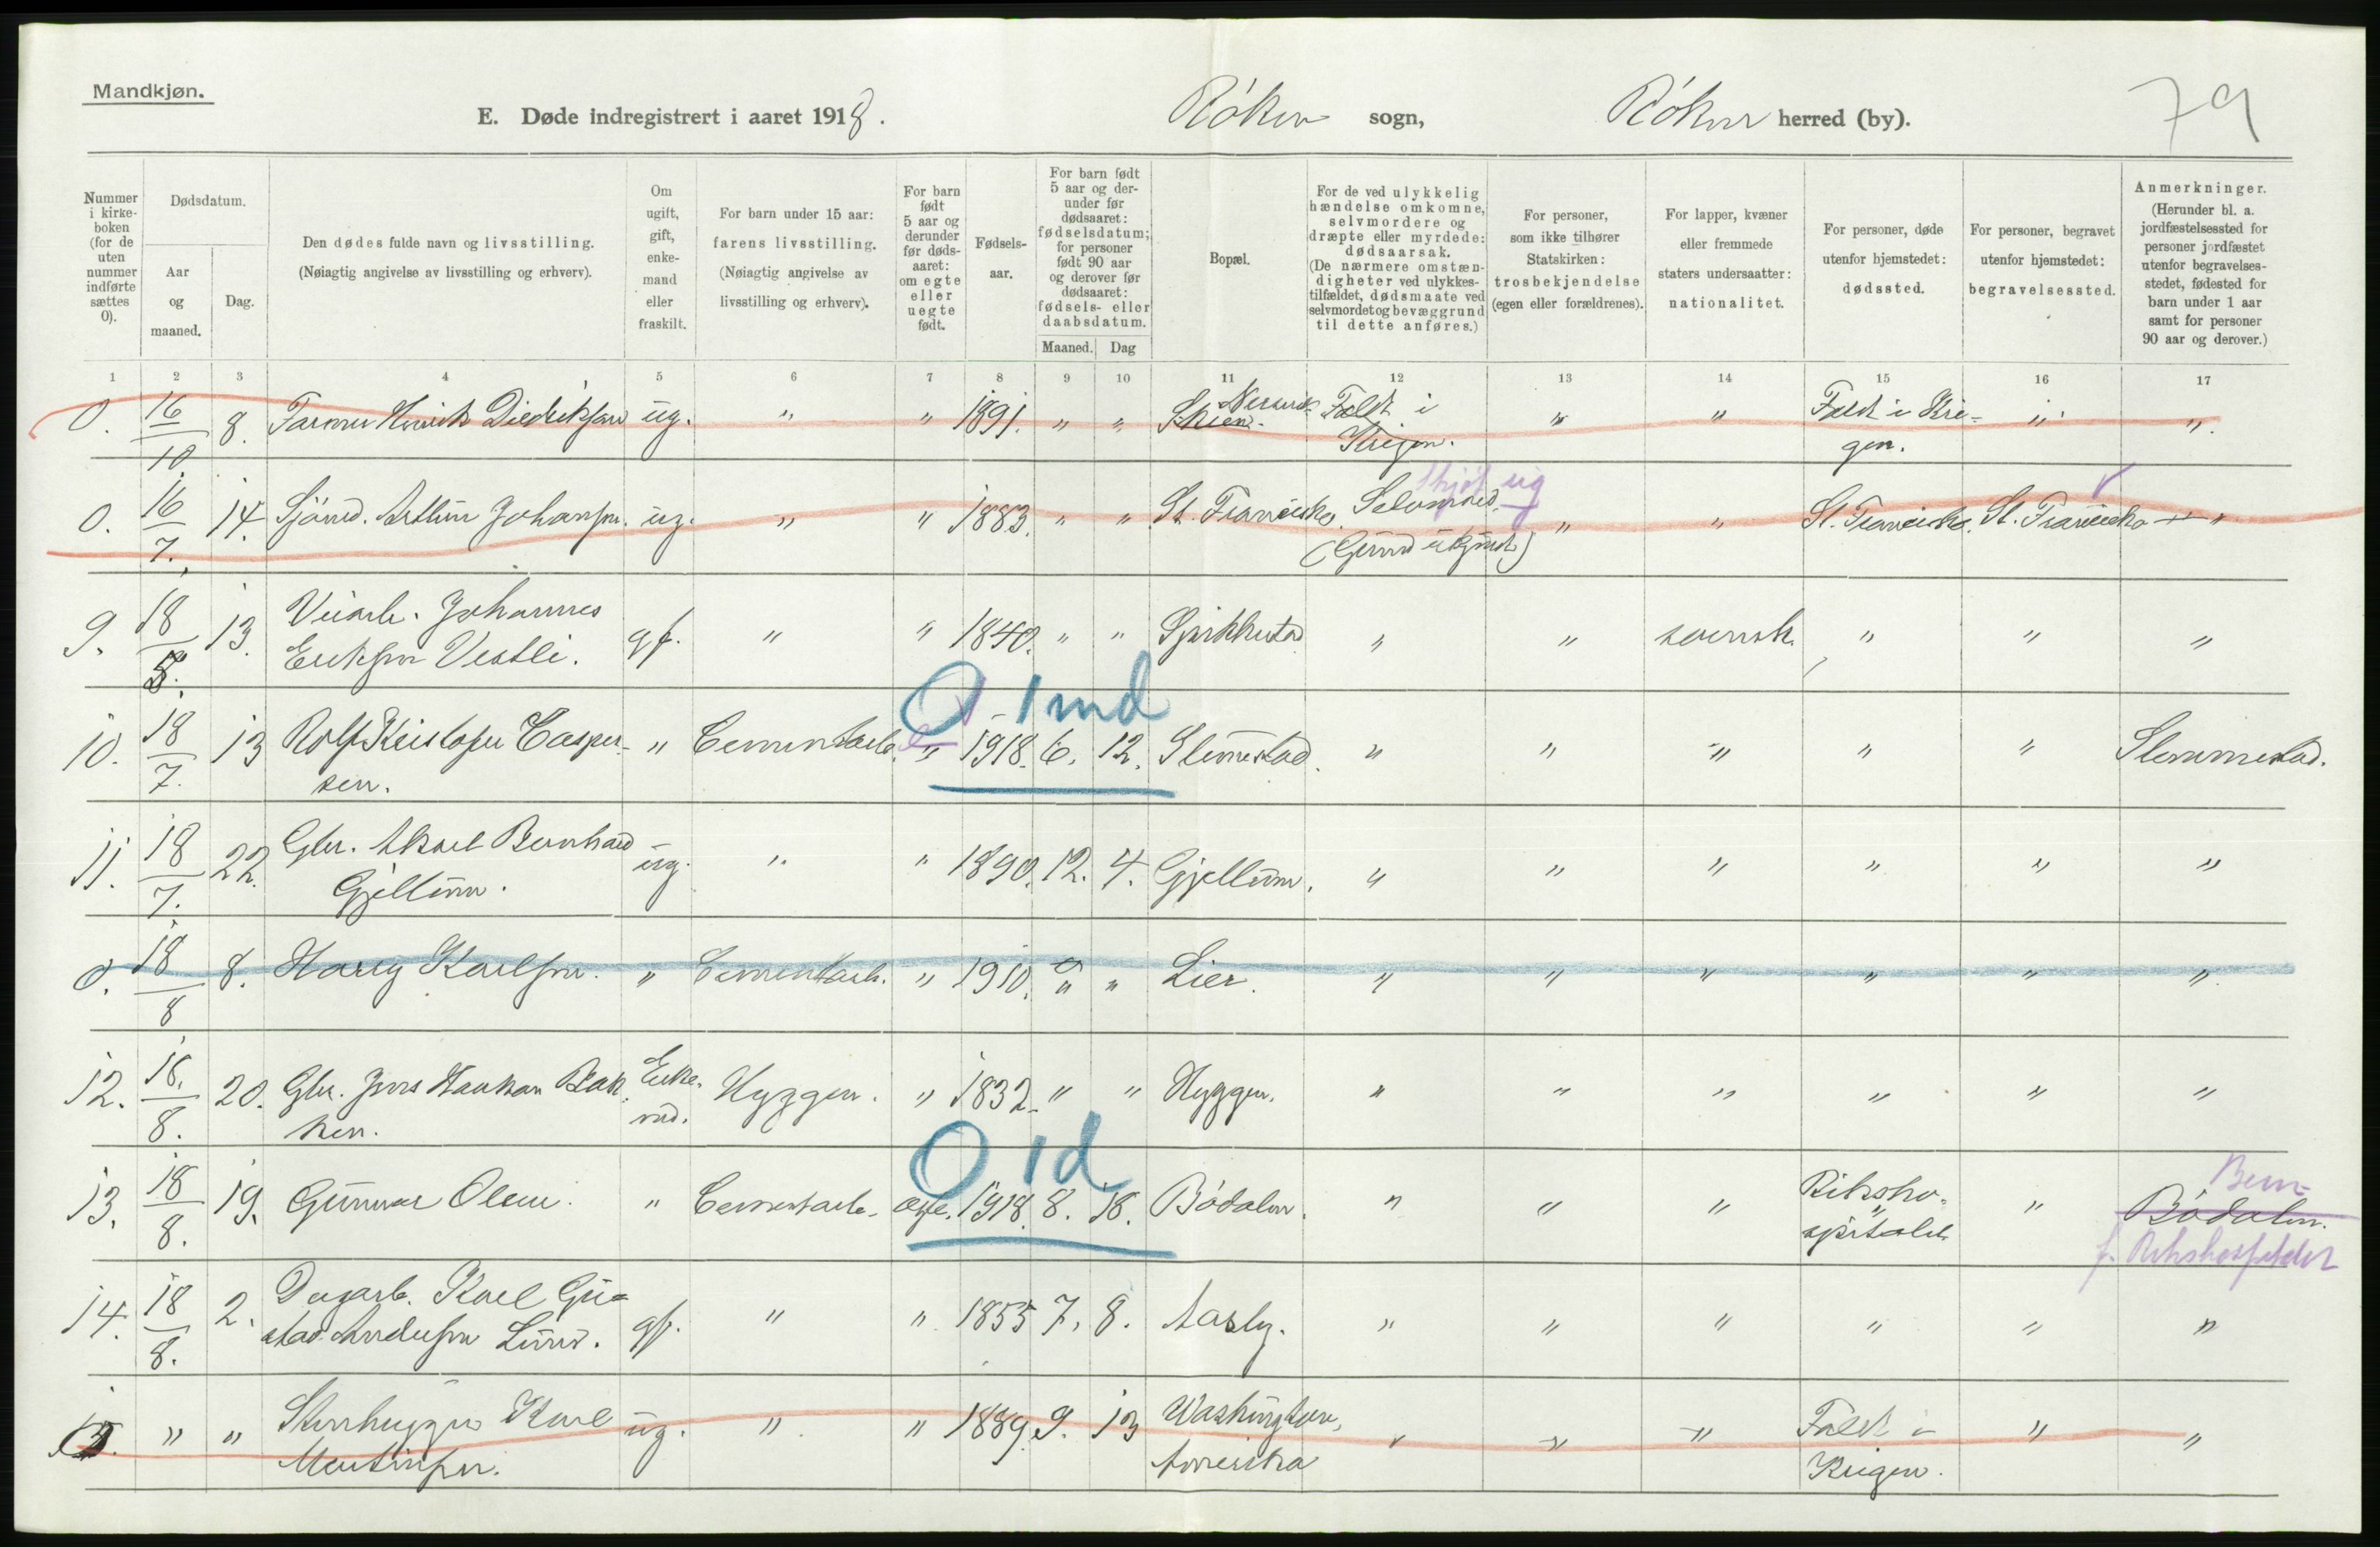 Mandkjøn.
E. Døde indregistrert i aaret 1918. Röken sogn, Röken herred (by). 79
Nummer i kirkeboken (for de uten nummer indførte sættes 0).
Dødsdatum.
Aar og maaned.
Dag.
Den dødes fulde navn og livsstilling.
(Nøiagtig angivelse av livsstilling og erhverv).
Om ugift, gift, enkemand eller fraskilt.
For barn under 15 aar: farens livsstilling.
(Nøiagtig angivelse av livsstilling og erhverv).
For barn født 5 aar og derunder før dødsaaret: om egte eller uegte født.
Fødselsaar.
For barn født 5 aar og derunder før dødsaaret: fødselsdatum; for personer født 90 aar og derover før dødsaaret: fødsels- eller daabsdatum.
Maaned. Dag
Bopæl.
For de ved ulykkelig hændelse omkomne, selvmordere og dræpte eller myrdede: dødsaarsak.
(De nærmere omstændigheter ved ulykkestilfældet, dødsmaate ved selvmordet og bevæggrund til dette anføres.)
For personer, som ikke tilhører Statskirken: trosbekjendelse (egen eller forældrenes).
For lapper, kvæner eller fremmede staters undersaatter: nationalitet.
For personer, døde utenfor hjemstedet: dødssted.
For personer, begravet utenfor hjemstedet: begravelsessted.
Anmerkninger.
(Herunder bl. a. jordfæstelsessted for personer jordfæstet utenfor begravelsesstedet, fødested for barn under 1 aar samt for personer 90 aar og derover.)
1 2 3 4 5 6 7 8 9 10 11 12 13 14 15 16 17
0. 16/10 8. Farmer Henrik Diedriksen ug. " " 1891. " " Skien. Faldt i Krigen. " " Faldt i Krigen. " "
0. 16/7. 14. Sjömd. Arthur Johansen. ug. " " 1883. " " St. Francisko. Selvmord. skjöt sig (Grund ukjendt) " " St. Francisko. St. Francisko "
9. 18/5. 13. Veiarb. Johannes Eriksen Vestli. gf. " " 1840. " " Spikkestad " " svensk. " " "
O 1 md
10. 18/7. 13 Rolf Kristofer Caspersen. " Cementarb. " 1918. 6. 12. Slemmestad. " " " " " Slemmestad.
11. 18/7. 22. Gbr. Aksel Bernhard Gjellum. ug. " " 1890. 12. 4. Gjellum. " " " " " "
0. 18/8 8. Harry Karlsen. " Cementarb. " 1910. " " Lier. " " " " " "
12. 18./8. 20. Gbr. Jens Haakon Bakken. Enkemd. Hyggen. " 1832. " " Hyggen. " " " " " "
O 1 d
13. 18/8. 19. Gunnar Olsen. " Cementarb. egte. 1918. 8. 18. Bödalen. " " " Rikshospitalet " Bödalen.
f. Rikshospitalet
14. 18/8. 2. Dagarb. Karl Gustav Andersen Lund. gf. " " 1855 7. 8. Aasby. " " " " " "
" " Stenhugger Karl Martinsen. ug. " " 1889. 9. 13 Washington, Amerika " " " Faldt i Krigen. " "